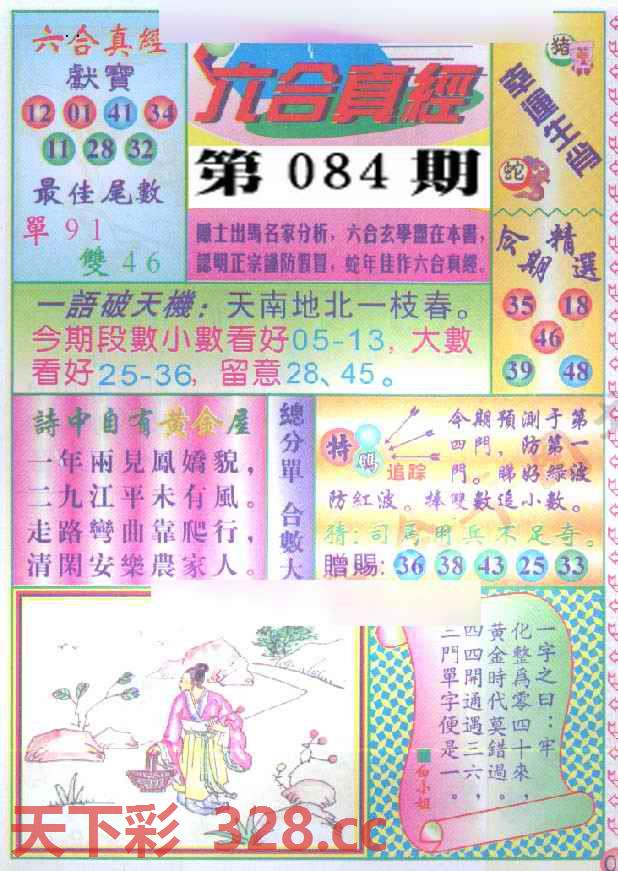 六合真經
獻寶
12 01 41 34
11 28 32
最佳尾數
單 91
雙 46
六合真經
第 084 期
隱士出馬名家分析，六合玄學盡在本書，
認明正宗謹防假冒，蛇年佳作六合真經。
豬
蛇
今期精選
35 18
46
39 48
一語破天機：天南地北一枝春。
今期段數小數看好05-13，大數
看好25-36，留意28、45。
詩中自有黃金屋
一年兩見鳳嬌貌，
二九江平未有風。
走路彎曲靠爬行，
清閑安樂農家人。
總分單 合數大
特碼
追踪
今期預測于第
四門，防第一
門。睇好綠波
防紅波。捧雙數追小數。
猜：司馬用兵不足奇。
贈賜：36 38 43 25 33
一字之曰：牢
化整為零四十來，
黃金時代莫錯過，
四四開通遇三六，
三門單字便是一。
白小姐
天下彩 328.cc